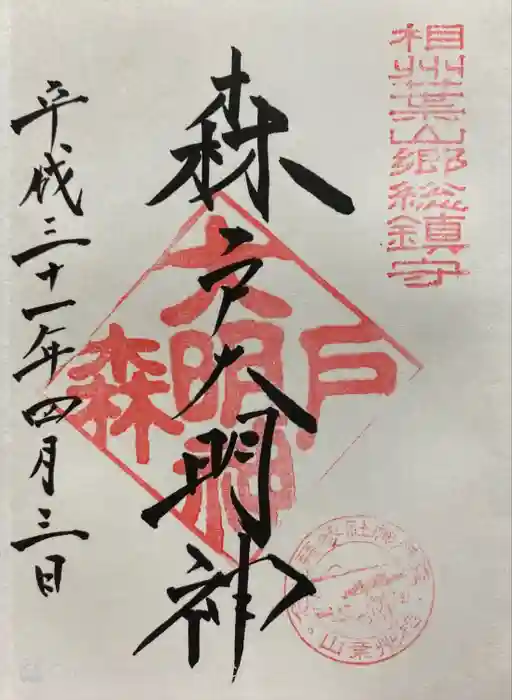 相州葉山郷総鎮守
森戸大明神
森戸大明神
平成三十一年四月三日